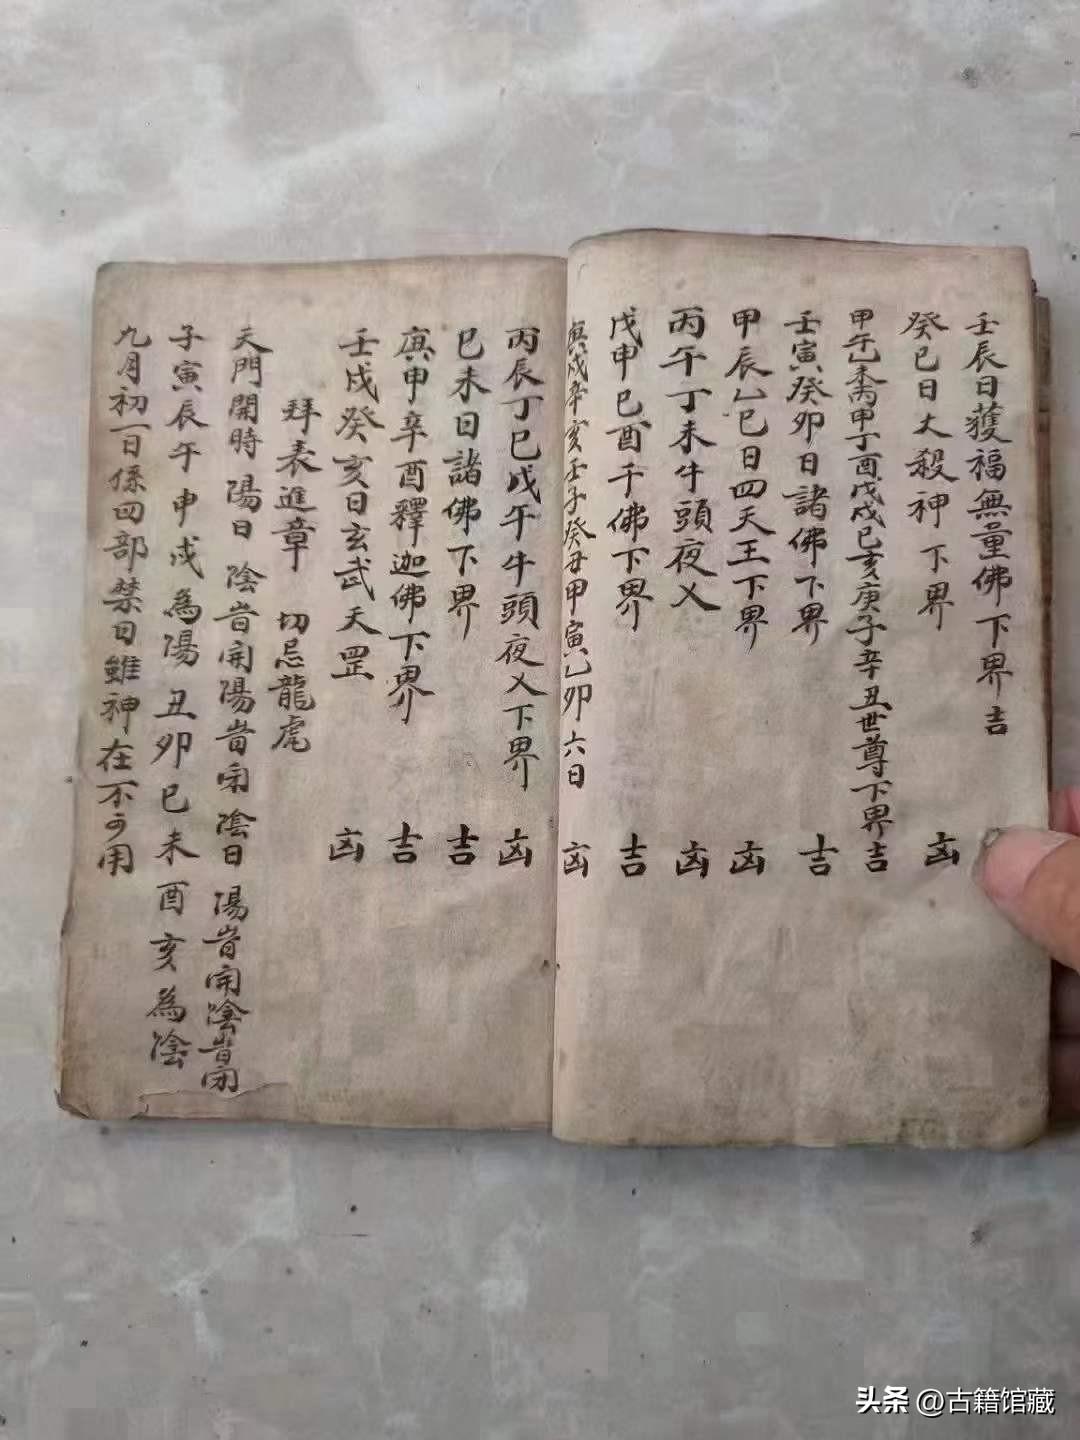 壬辰日獲福無量佛下界吉
癸巳日大殺神下界 凶
甲午乙未丙申丁酉戊戌己亥庚子辛丑世尊下界吉
壬寅癸卯日諸佛下界 吉
甲辰乙巳日四天王下界 凶
丙午丁未牛頭夜乂 凶
戊申己酉千佛下界 吉
庚戌辛亥壬子癸丑甲寅乙卯六日 凶
丙辰丁巳戊午牛頭夜乂下界 凶
巳未日諸佛下界 吉
庚申辛酉釋迦佛下界 吉
壬戌癸亥日玄武天罡 凶
拜表進章 切忌龍虎
天門開時 陽日 陰旹開陽旹闭陰日 陽旹開陰旹闭
子寅辰午申戌為陽 丑卯巳未酉亥為陰
九月初一日係四部禁日雖神在不可用
头条 @古籍馆藏